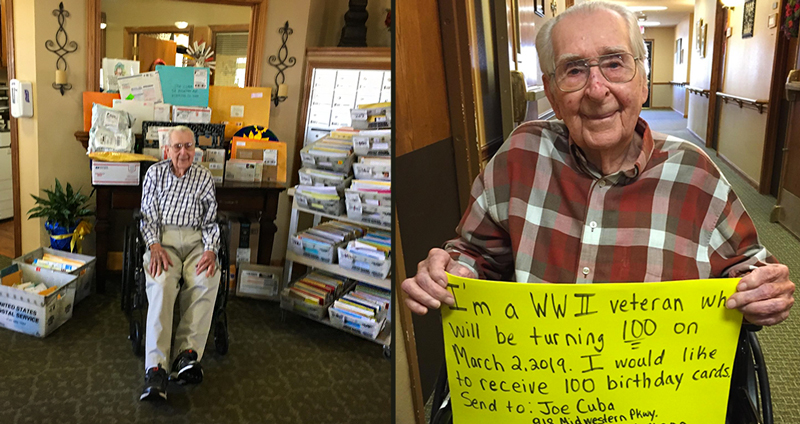 UNITED STATES
POSTAL SERVICE
I'm a WWII veteran wh
will be turning 100 on
March 2, 2019. I would like
to receive 100 birthday cards.
Send to: Joe Cuba
Midwestern Pkwy.